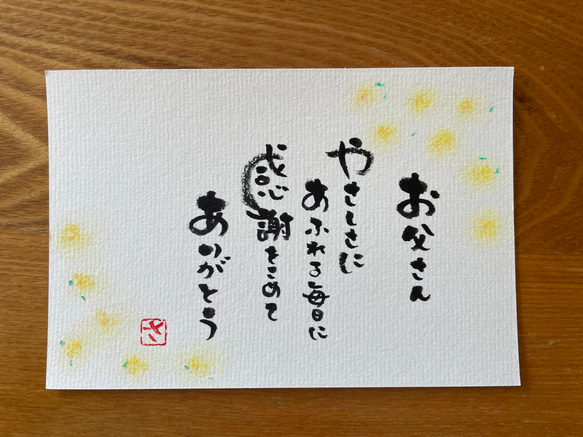 お父さん
やさしさに
あふれる毎日に
感謝をこめて
ありがとう
さ